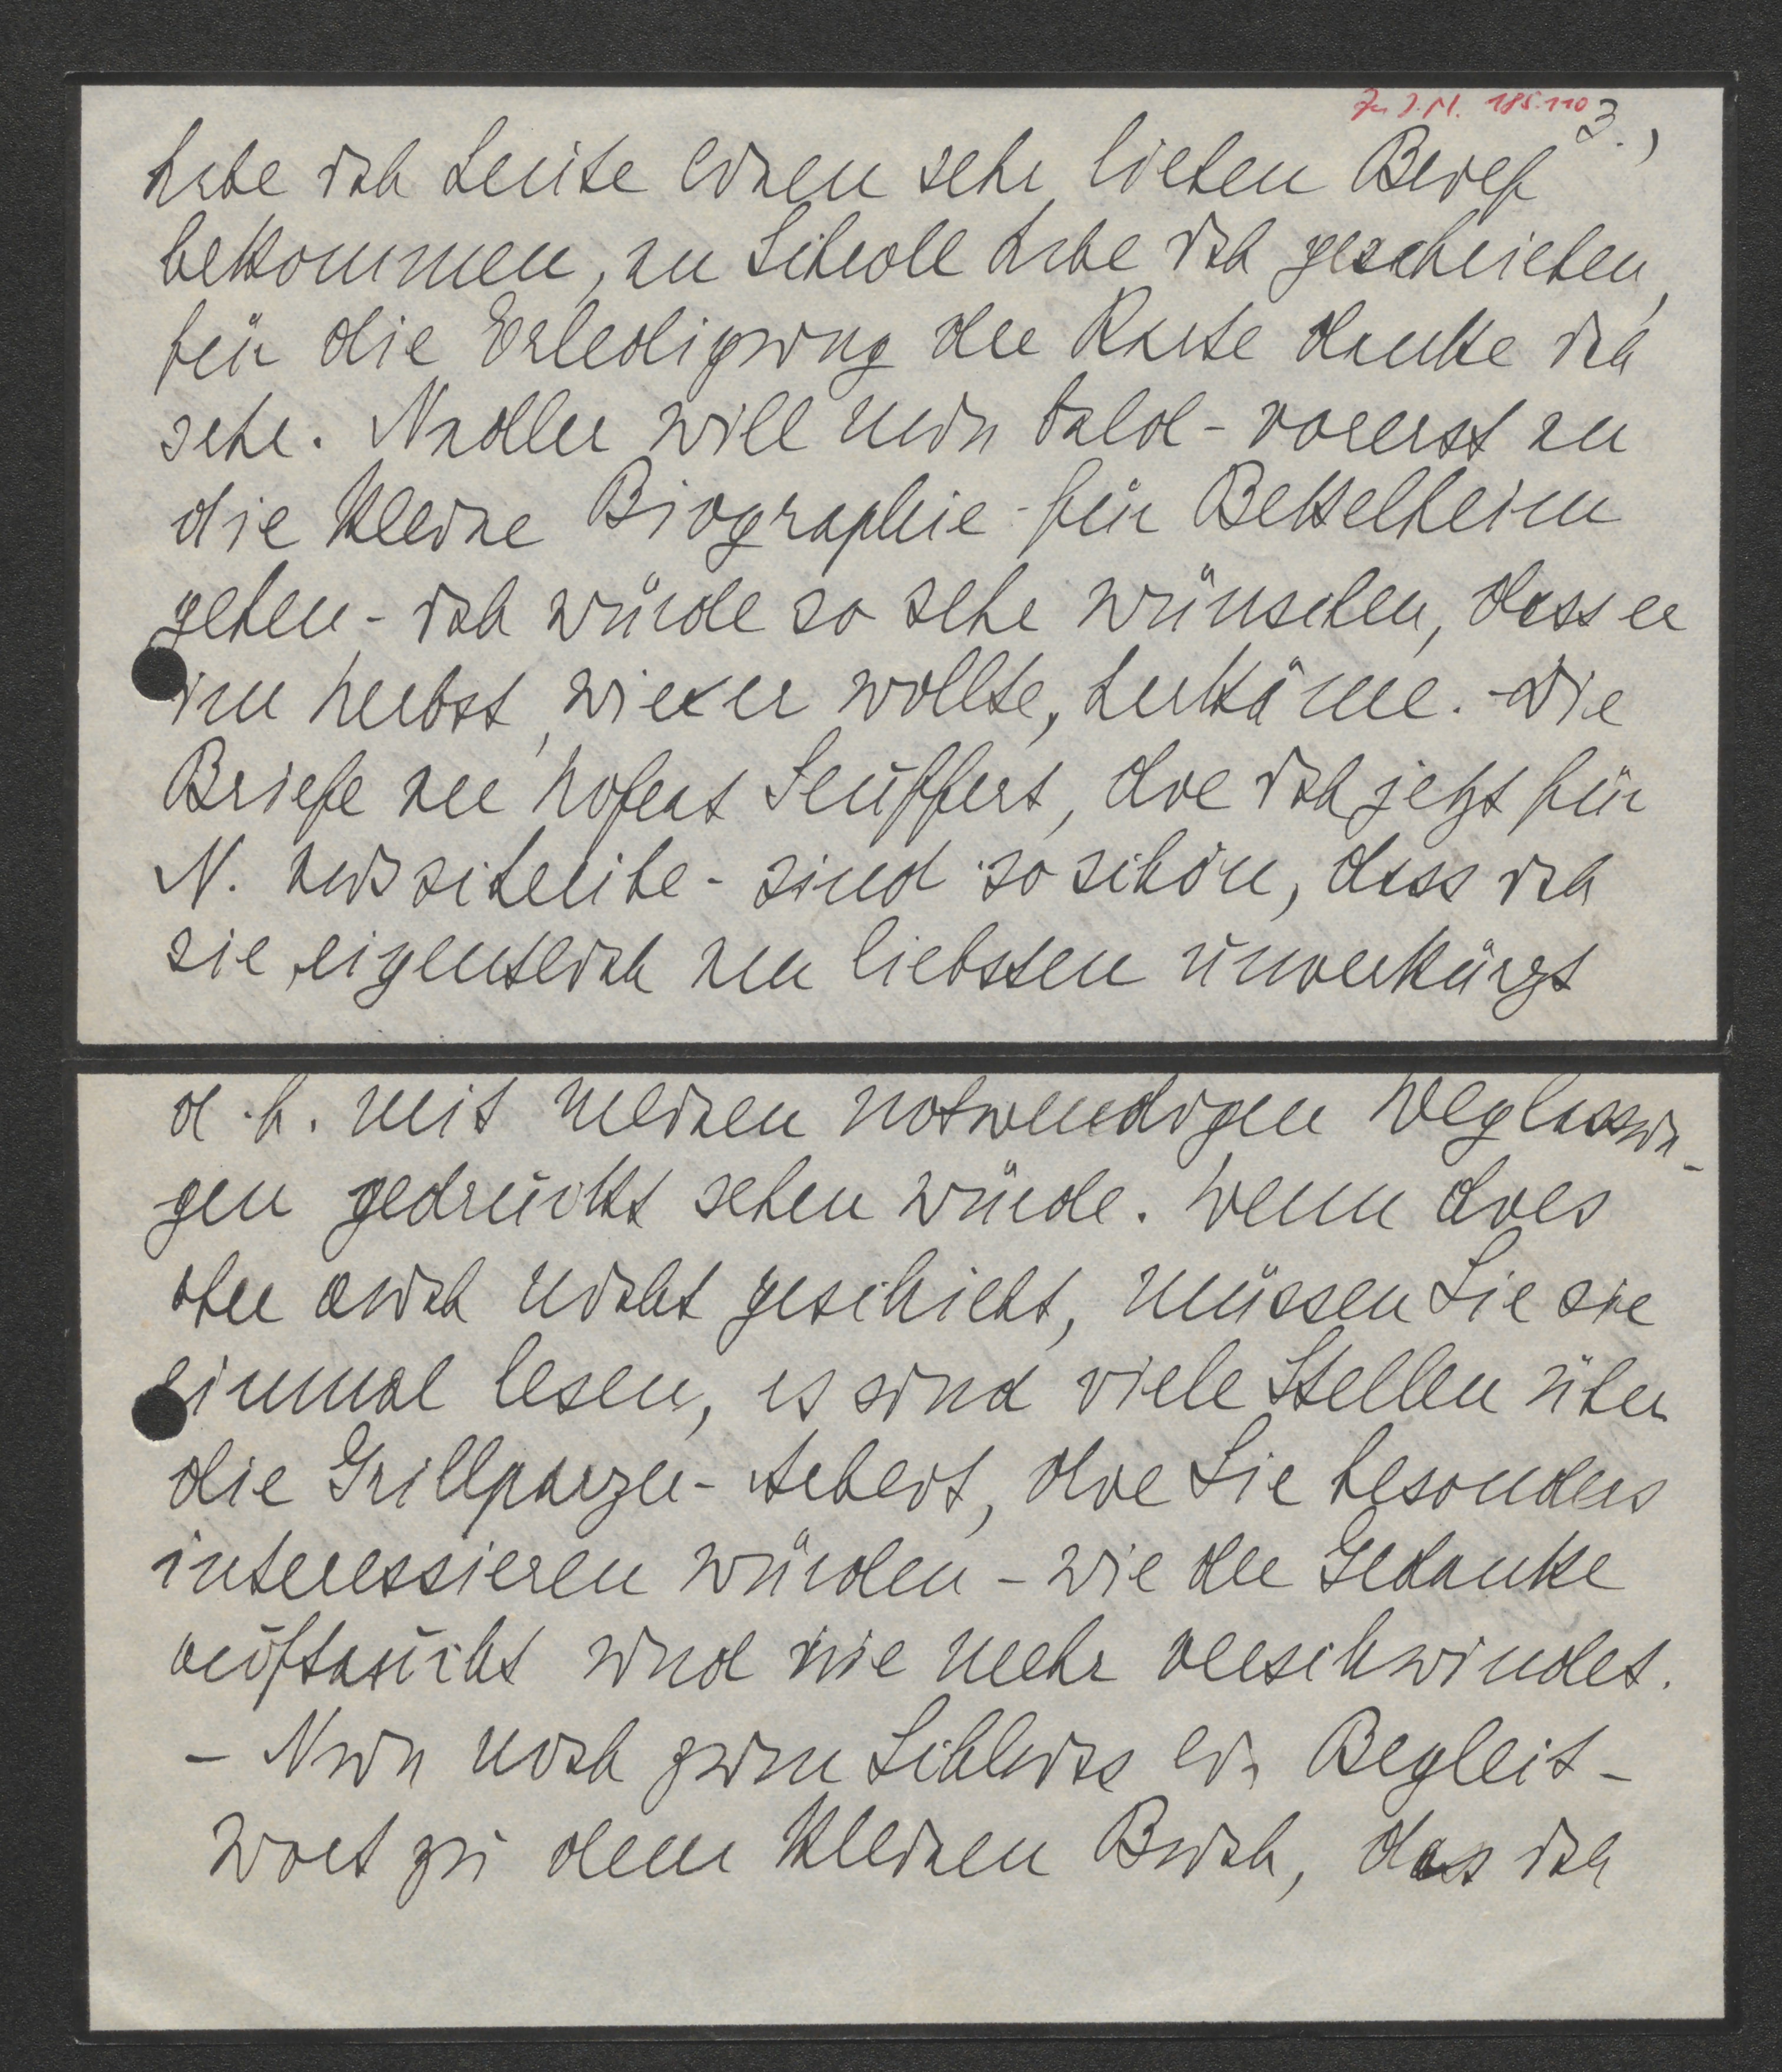 Zu I.N. 185.110
3.,
habe ich heute einen sehr lieben Brief
bekommen, an Schroll habe ich geschrieben,
für die Erledigung der Karte danke ich
sehr. Nadler will nun bald - vorerst an
die kleine Biographie für Bettelheim
gehen - ich würde so sehr wünschen, dass er
im Herbst, wie er wollte, herkäme. - Die
Briefe an Hofrat Seuffert, die ich jetzt für
N. ausschreibe - sind so schön, dass ich
sie eigentlich am liebsten unverkürzt
d. h. mit kleinen notwendigen Weglassun-
gen gedruckt sehen würde. Wenn dies
aber auch nicht geschieht, müssen Sie sie
einmal lesen, es sind viele Stellen über
die Grillparzer-Arbeit, die Sie besonders
interessieren würden - wie der Gedanke
auftaucht und nie mehr verschwindet.
- Nun noch zum Schluss ein Begleit-
wort zu dem kleinen Buch, das ich